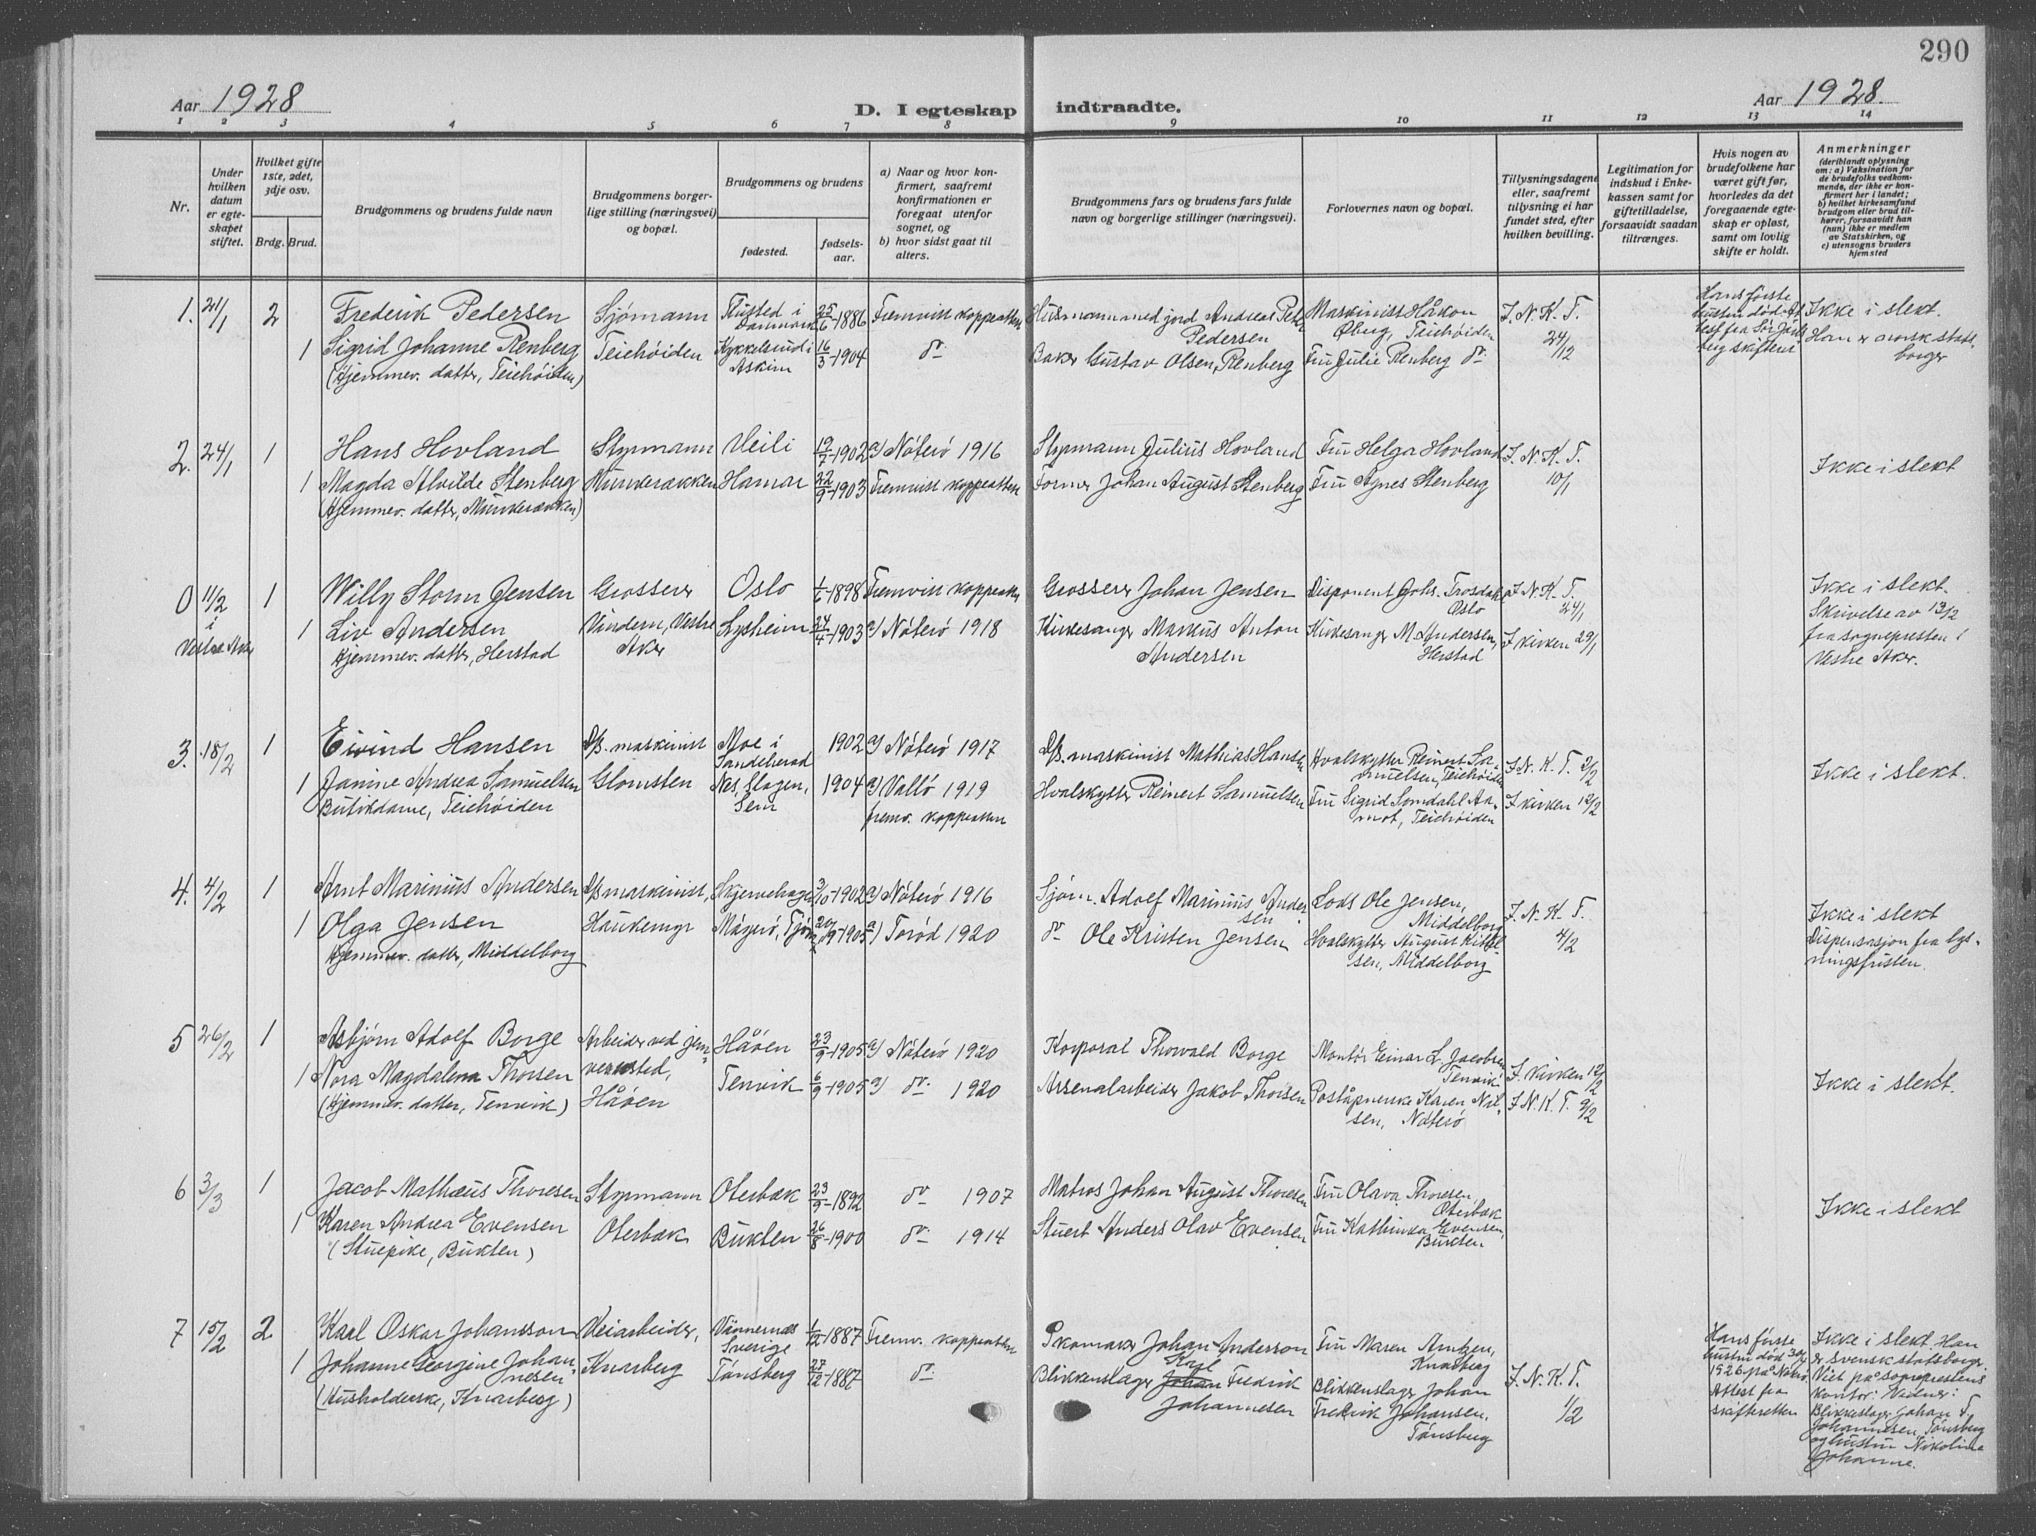 290
Aar 1928
D. I egteskap indtraadte.
Aar 1928.
1 2 3 4 5 6 7 8 9 10 11 12 13 14
Nr.
Under hvilken datum er egteskapet stiftet.
Hvilket gifte 1ste, 2det, 3dje osv.
Brdg. Brud.
Brudgommens og brudens fulde navn
Brudgommens borgerlige stilling (næringsvei) og bopæl.
Brudgommens og brudens
fødested.
fødselsaar.
a) Naar og hvor konfirmert, saafremt konfirmationen er foregaat utenfor sognet, og
b) hvor sidst gaat til alters.
Brudgommens fars og brudens fars fulde navn og borgerlige stillinger (næringsvei).
Forlovernes navn og bopæl.
Tillysningsdagene eller, saafremt tillysning ei har fundet sted, efter hvilken bevilling.
Legitimation for indskud i Enkekassen samt for giftetilladelse, forsaavidt saadan tiltrænges.
Hvis nogen av brudefolkene har været gift før, hvorledes da det foregaaende egteskap er opløst, samt om lovlig skifte er holdt.
Anmerkninger
(deriblandt oplysning om: a) Vaksination for de brudefolks vedkommende, der ikke er konfirmert her i landet; b) hvilket kirkesamfund brudgom eller brud tilhører, forsaavidt han (hun) ikke er medlem av Statskirken, og c) utensogns bruders hjemsted
1. 21/1 2 Frederik Pedersen Sjømann i Danmark 25/6-1886 Fremvist koppeattest
Husmann med jord Andreas Pedersen Maskinist Håkon Teiehøiden I. N. K. T. 24/12
Hans første hustru død skifterett
Ikke i slekt. Han er norsk statsborger
1 Sigrid Johanne Renberg Teiehøiden Kykkelsrud i Askim 16/3-1904 do
(Hjemmev. datter, Teiehøiden)
Baker Gustav Olsen Renberg Fru Julie Renberg do
2. 24/1 1 Hans Hovland Styrmann Veili 19/7-1902 a) Nøterø 1916
Styrmann Julius Hovland Fru Helga Hovland I. N. K. T. 10/1
Ikke i slekt
1 Magda Alvilde Stenberg Munkerækken Hamar 22/9-1903 Fremvist koppeattest
(Hjemmev. datter, Munkerækken)
Former Johan August Stenberg Fru Agnes Stenberg
0 11/2 i Vestre Aker 1 Willy Storm Jensen Grosserer Oslo 1/6-1898 Fremvist koppeattest
Grosserer Johan Jensen Disponent Johs. Trosdahl Oslo I. N. K. T. 24/1
Ikke i slekt. Skrivelse av 13/2 fra sognepresten i Vestre Aker.
1 Liv Andersen Vindern, Vestre Aker Lysheim 24/4-1903 a) Nøterø 1918
Hjemmev. datter, Herstad
Kirkesanger Markus Anton Andersen Kirkesanger M. Andersen, Herstad I kirken 29/1
3. 18/2 1 Eivind Hansen D/S. maskinist Moe i Sandeherad 1902 a) Nøterø 1917
D/S. maskinist Mathias Hansen Hvalskytter Reinert Samuelsen, Teiehøiden I. N. K. T. 2/2
Ikke i slekt.
1 Janine Andrea Samuelsen Glomsten Nes, Slagen, Sem 1904 a) Valló 1919
Butikdame, Teiehøiden
fremv. koppeatten
Hvalskytter Reinert Samuelsen Fru Sigrid Somdahl Aamot, Teiehøiden I kirken 12/2
4. 4/2 1 Arnt Marinius Andersen D/S maskinist, Skjervehagen 3/10-1902 a) Nøterø 1916
Sjøm. Adolf Marinius Andersen Lods Ole Jensen, Middelborg I. N. K. T. 4/2
Ikke i slekt
Dispensasjon fra lysningsfristen.
1 Olga Jensen Haukemyr Mågerø, Tjøme 20/9-1905 a) Torød 1920
Hjemmev. datter, Middelborg
do Ole Kristen Jensen Hvalskytter August Kittelsen, Middelborg
5 26/2 1 Asbjørn Adolf Borge Arbeider ved jernverksted, Håøen 23/9-1905 a) Nøterø 1920
Korporal Thorvald Borge Montør Einar L. Jacobsen Tenvik I. kirken 12/2
Ikke i slekt.
1 Nora Magdalena Thorsen Håøen Tenvik 6/9-1905 a) do 1920
(Hjemmev. datter, Tenvik)
Arsenalarbeider Jakob Thorsen Poståpnerske Karen Nilsen, Nøterø I. N. K. T. 9/2
6 3/3 1 Jacob Mathæus Thoresen Styrmann Oterbæk 23/9-1892 do 1907
Matros Johan August Thoresen Fru Olava Thoresen, Oterbæk
Ikke i slekt
1 Karen Andrea Evensen Oterbæk Bukten 26/8-1900 do 1914
(Stuepike, Bukten)
Stuert Anders Olav Evensen Fru Kathinka Evensen, Bukten
7 15/2 2 Karl Oskar Johansson Veiarbeider, Vännernäs Sverige 1/12-1887 Fremv. koppeatten
Skomaker Johan Anderson Fru Maren Arntzen, Knarberg I. N. K. T. 1/2
Hans første hustru død 1926 på Nøterø Attest fra skifteretten
Ikke i slekt. Han er svensk statsborger. Viet på sogneprestens kontor: Vidner: Blikkeslager Johan F. Johannesen, Tønsberg og hustru Nikoline Johanne.
1 Johanne Georgine Johannesen Knarberg Tønsberg 27/12-1887 do
(Husholderske, Knarberg)
Blikkenslager Johan Karl Fredrik Johannesen Blikkenslager Johan Fredrik Johansen, Tønsberg